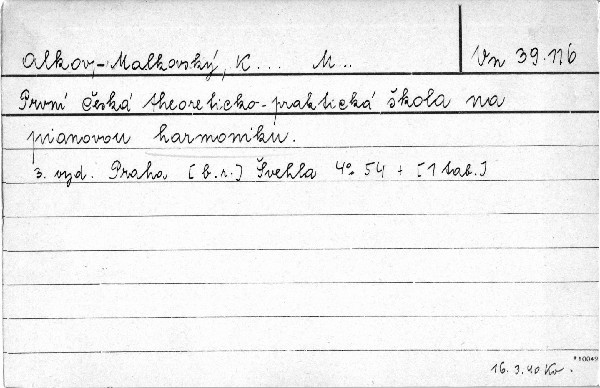 Alkov,-Malkovský, K... M..
Vn 39.116
První česká theoreticko-praktická škola na
pianovou harmoniku.
3. vyd. Praha [b.r.] Švehla 4° 54 + [1 tab.]
*10049
16.3.40 Kv.